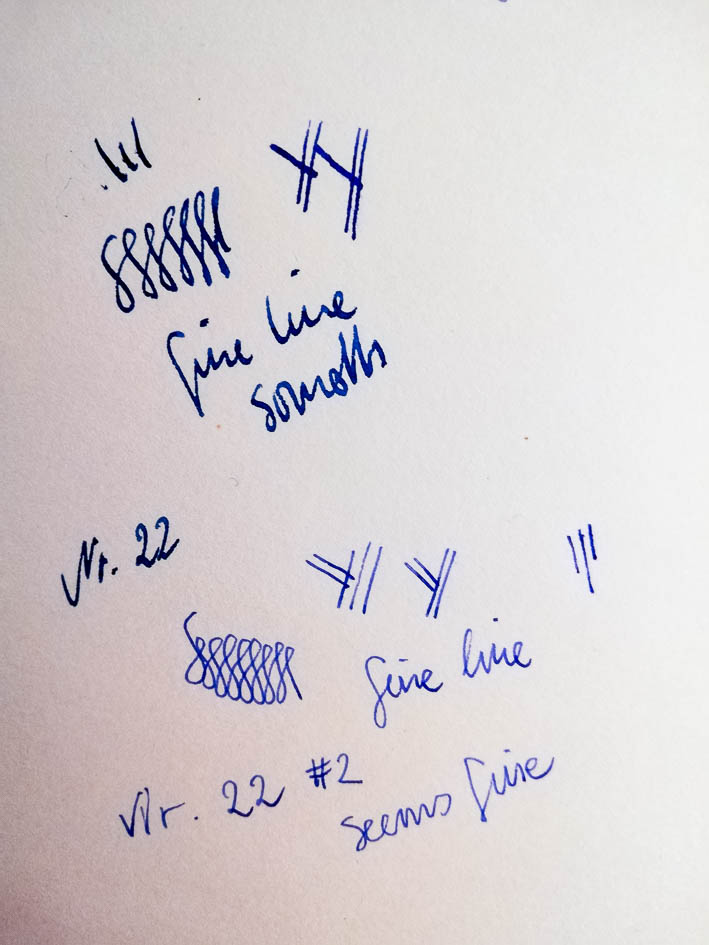 fine line
smooth
Nr. 22
fine line
Nr. 22 #2
seems fine